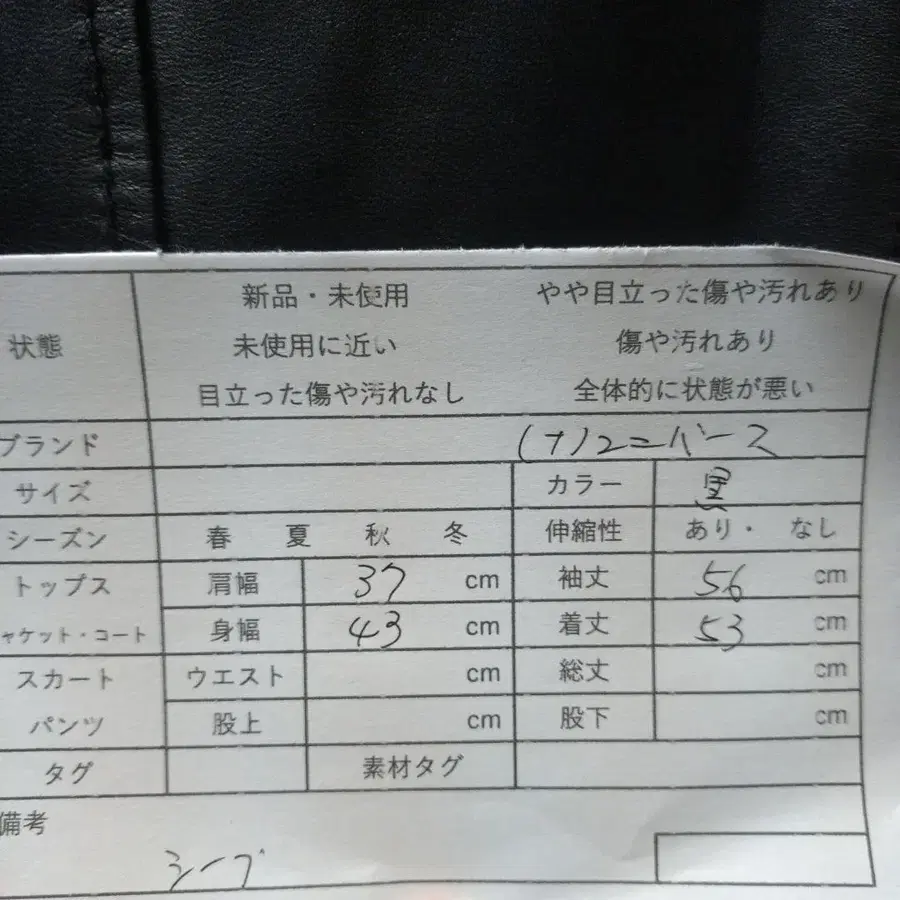 新品・未使用 やや目立った傷や汚れあり
状態 未使用に近い 傷や汚れあり
目立った傷や汚れなし 全体的に状態が悪い
ブランド (ナノユニバース
サイズ カラー 黒
シーズン 春 夏 秋 冬 伸縮性 あり・ なし
トップス 肩幅 37 cm 袖丈 56 cm
ャケット・コート 身幅 43 cm 着丈 53 cm
スカート ウエスト cm 総丈 cm
パンツ 股上 cm 股下 cm
タグ 素材タグ
備考
シープ